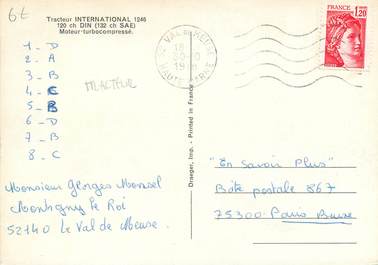 6€
Tracteur INTERNATIONAL 1246
120 ch DIN (132 ch SAE)
Moteur-turbocompressé.
1 - D
2 - A
3 - B
4 - C
5 - B
6 - D
7 - B
8 - C
TRACTEUR
Draeger, Imp. - Printed in France
VAL DE MEUSE
18 H
HAUTE MARNE
FRANCE
1,20
"En Savoir Plus"
Bôte postale 867
75300 - Paris Brune
Monsieur Georges Monsel
Montigny le Roi
52140 Le Val de Meuse.